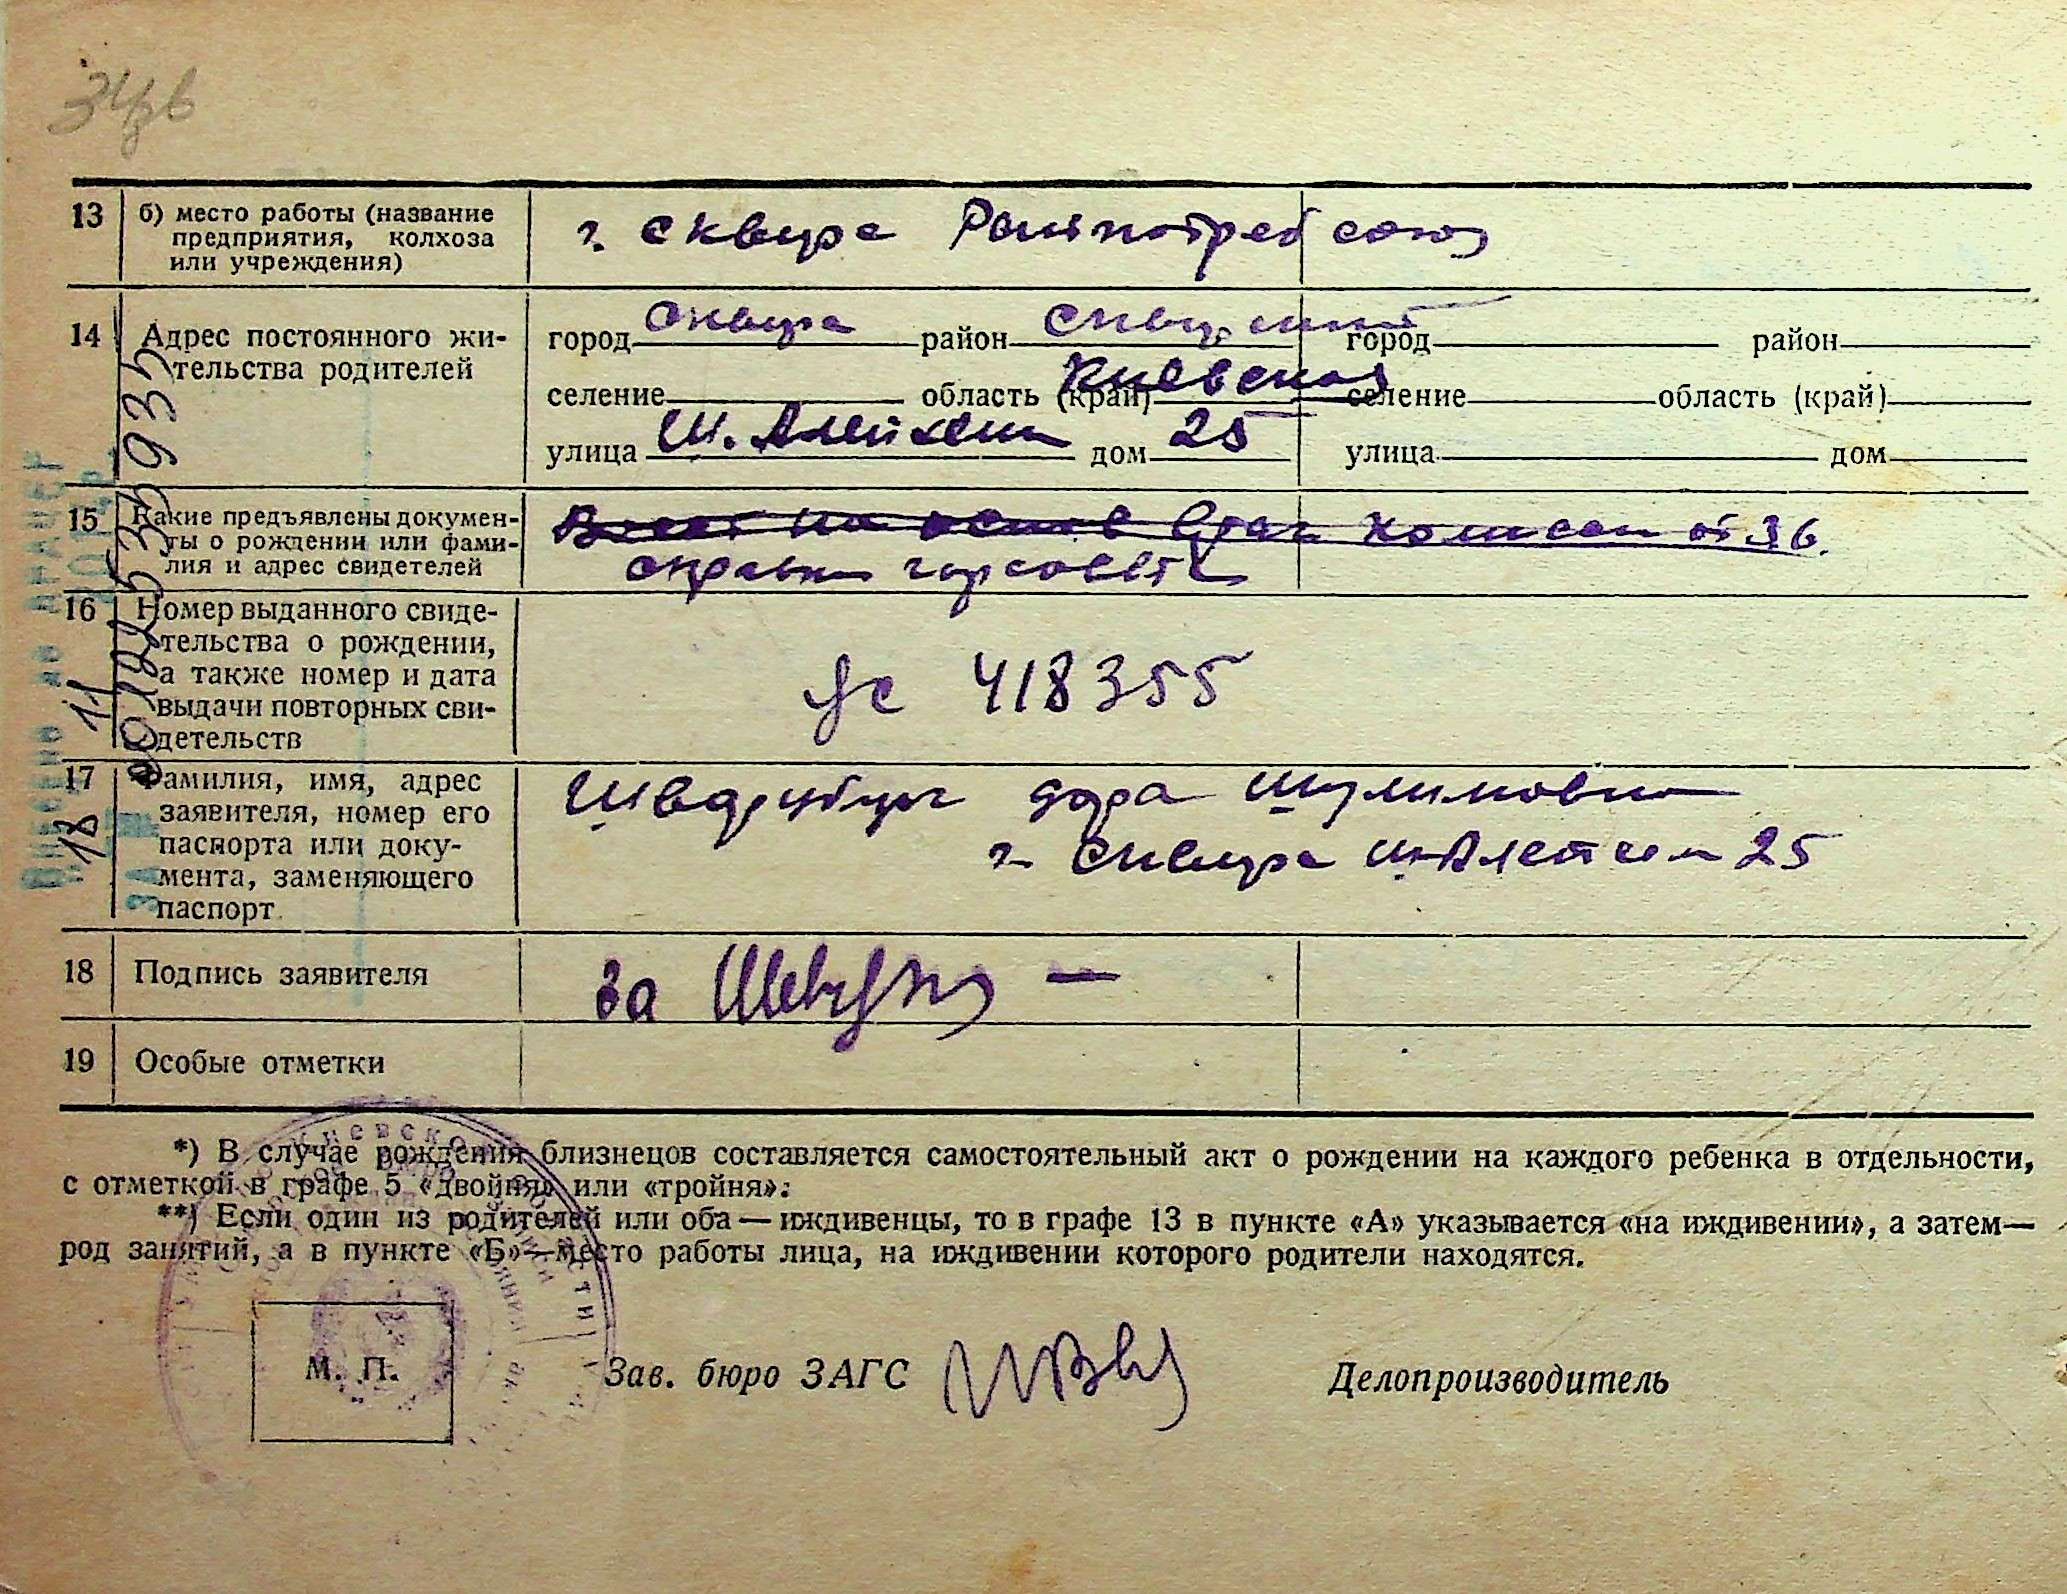 13 б) место работы (название
предприятия, колхоза
или учреждения)
г. Сквира Райпотребсоюз
14 Адрес постоянного жи-
тельства родителей
город Сквира район Сквирский
селение область (край) Киевская
улица Ш. Алейхема дом 25
город район
селение область (край)
улица дом
15 Какие предъявлены докумен-
ты о рождении или фами-
лия и адрес свидетелей
справки горсовета
16 Номер выданного свиде-
тельства о рождении,
а также номер и дата
выдачи повторных сви-
детельств
418355
17 Фамилия, имя, адрес
заявителя, номер его
паспорта или доку-
мента, заменяющего
паспорт
Дора Шулимовна
г. Сквира Ш-Алейхем 25
18 Подпись заявителя
за
19 Особые отметки
*) В случае рождения близнецов составляется самостоятельный акт о рождении на каждого ребенка в отдельности,
с отметкой в графе 5 «двойня» или «тройня».
**) Если один из родителей или оба — иждивенцы, то в графе 13 в пункте «А» указывается «на иждивении», а затем—
род занятий, а в пункте «Б»—место работы лица, на иждивении которого родители находятся.
М. П.
Зав. бюро ЗАГС
Делопроизводитель